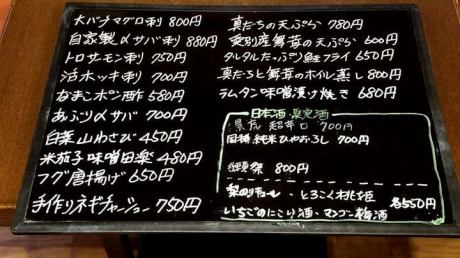 大バチマグロ刺 800円
自家製〆サバ刺 880円
トロサーモン刺 750円
活ホッキ刺 700円
なまこポン酢 580円
あぶり〆サバ 700円
白菜山わさび 450円
米茄子味噌田楽 480円
フグ唐揚げ 650円
手作りネギチャーシュー 750円
真だちの天ぷら 780円
愛別産舞茸の天ぷら 600円
タルタルたっぷり鮭フライ 650円
真だちと舞茸のホイル蒸し 800円
ラムタン味噌漬け焼き 680円
日本酒・果実酒
超辛口 700円
国稀 純米ひやおろし 700円
獺祭 800円
梨のリキュール・とろこく桃姫 各550円
いちごのにごり酒、マンゴー梅酒